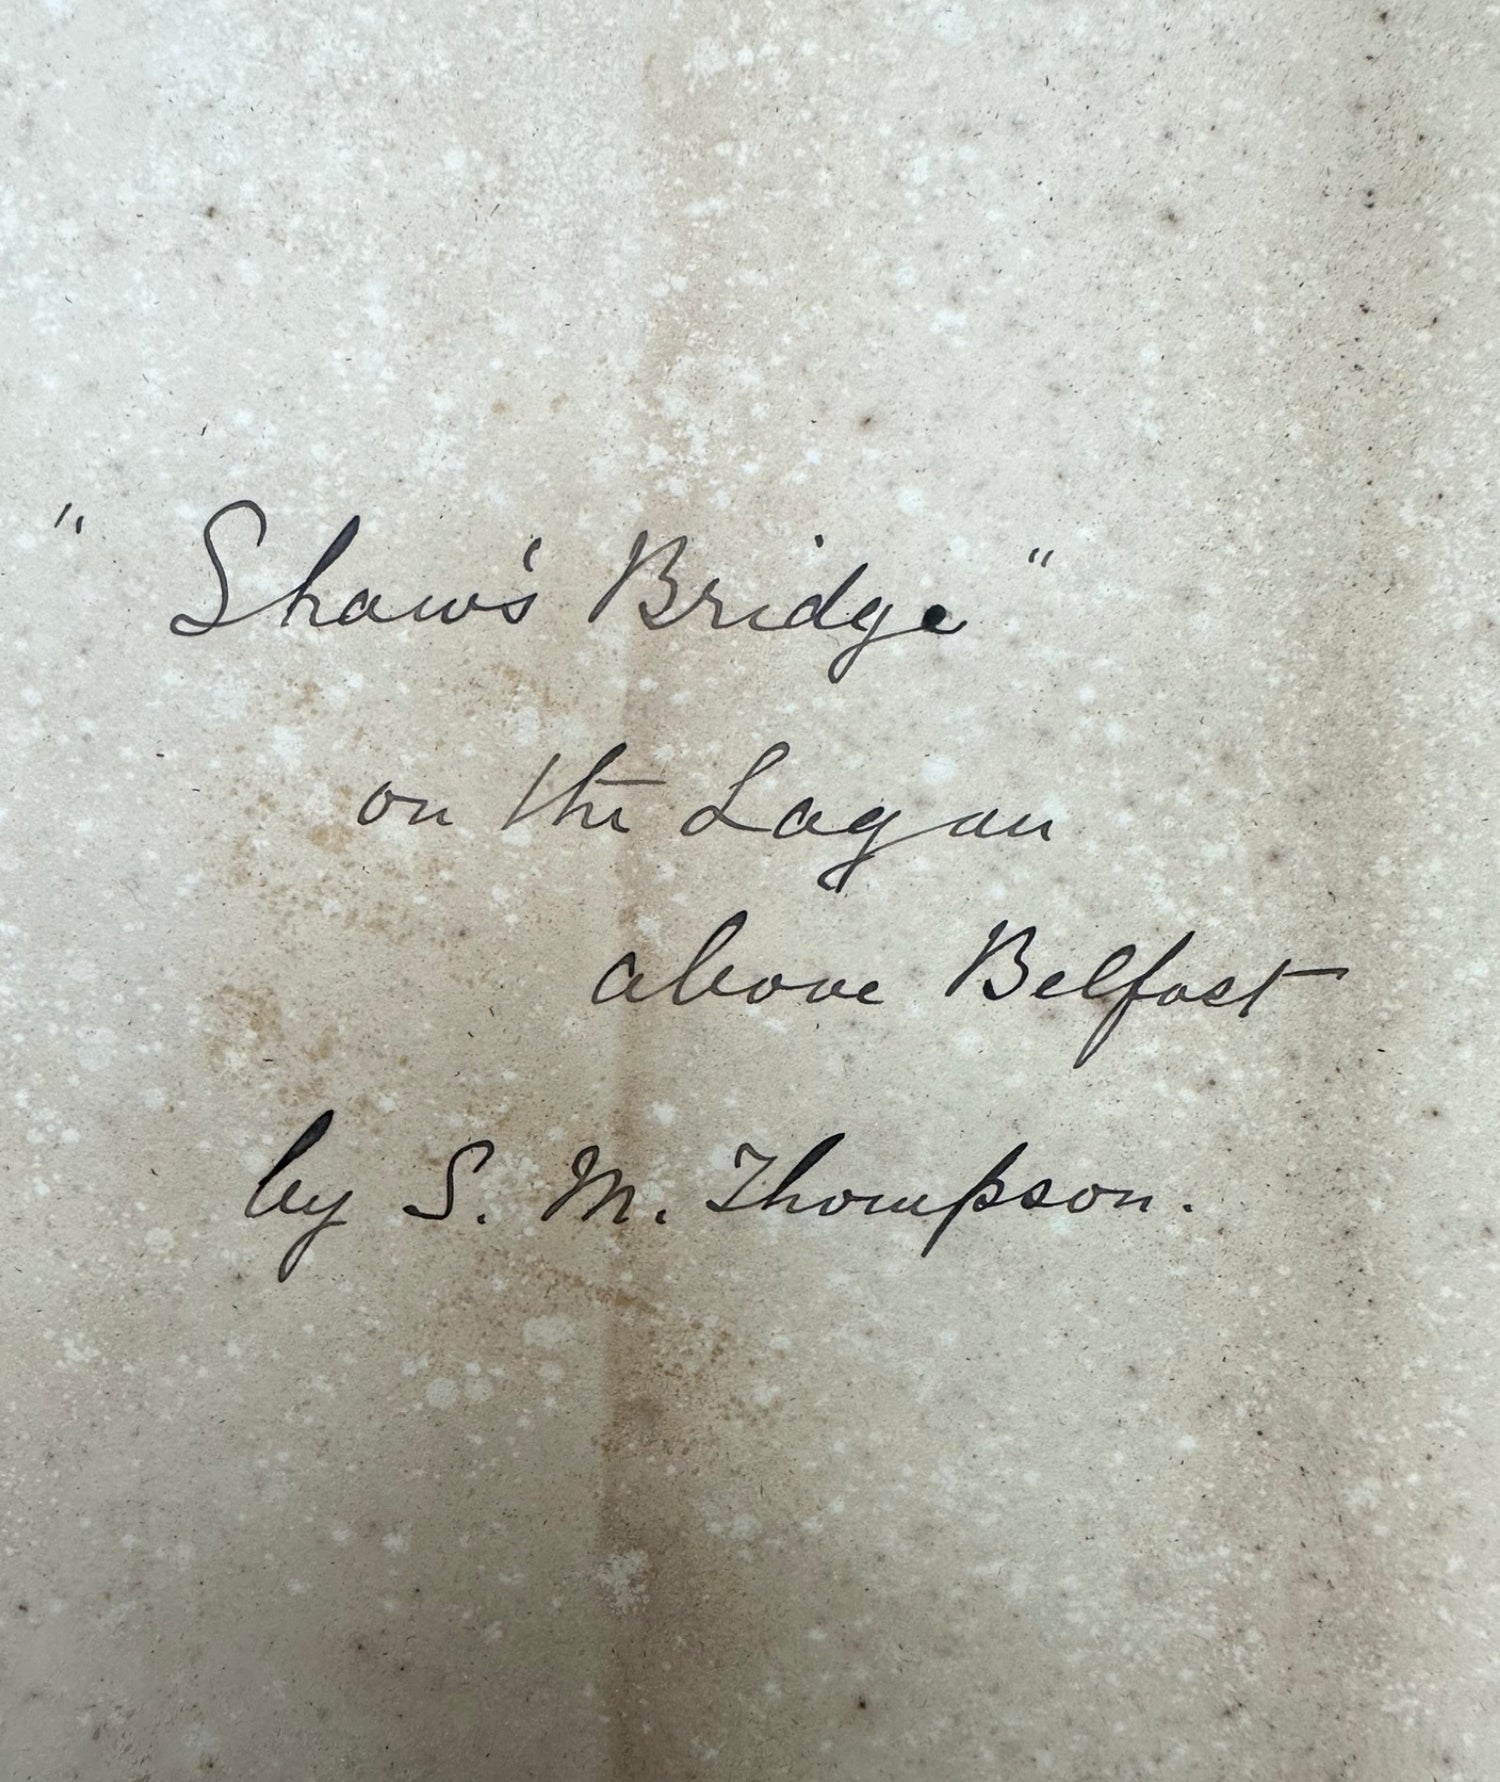 "Shaw's Bridge"
on the Lagan
above Belfast
by S. M. Thompson.